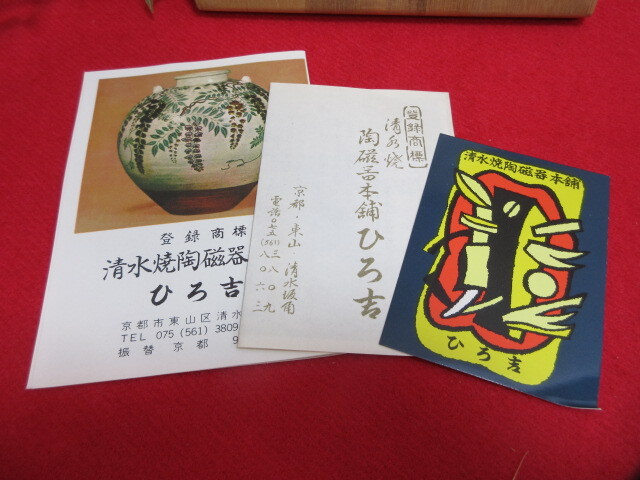 登録商標
清水焼陶磁器
ひろ吉
京都市東山区清水
TEL 075 (561) 3809
振替 京都 9
登録商標
清水焼
陶磁器本舗ひろ吉
京都・東山 清水坂角
電話〇七五(561)三八〇九
八〇六三
清水焼陶磁器本舗
ひろ吉